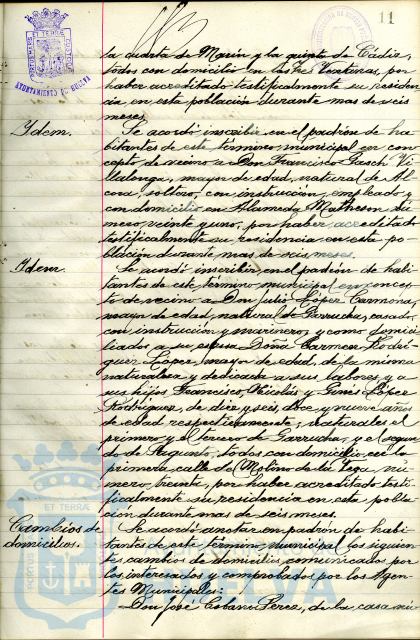 11
PORTUS MARIS ET TERRAE CUSTODIA
AYUNTAMIENTO DE HUELVA
la cuarta de Marín y la quinta de Cádiz,
todos con domicilio en las Tres Ventanas, por
haber acreditado testificalmente su residen-
cia en esta población durante mas de seis
meses.
Ydem.
Se acordó inscribir en el padrón de ha-
bitantes de este término municipal en con-
cepto de vecino a Don Francisco Gasch Vi-
llalonga, mayor de edad, natural de Al-
cora, soltero, con instrucción, empleado y
con domicilio en Alameda Matheson nú-
mero veinte y uno, por haber acreditado
testificalmente su residencia en esta po-
blación durante mas de seis meses.
Ydem.
Se acordó inscribir en el padrón de habi-
tantes de este término municipal en concep-
to de vecino a Don Julio López Carmona,
mayor de edad, natural de Garrucha, casado,
con instrucción y marinero, y como domici-
liados a su esposa Doña Carmen Rodrí-
guez López, mayor de edad, de la misma
naturaleza y dedicada a sus labores, y a
sus hijos Francisco, Nicolás y Ginés López
Rodríguez, de diez y seis, doce y nueve años
de edad respectivamente, naturales el
primero y tercero de Garrucha, y el segun-
do de Sagunto, todos con domicilio en la
primera calle de Molino de la Vega, nú-
mero veinte, por haber acreditado testi-
ficalmente su residencia en esta pobla-
ción durante mas de seis meses.
Cambios de
domicilios.
Se acordó anotar en padrón de habi-
tantes de este término municipal los siguien-
tes cambios de domicilios comunicados por
los interesados y comprobados por los Agen-
tes Municipales:
Don José Cobano Perea, de la casa nú-